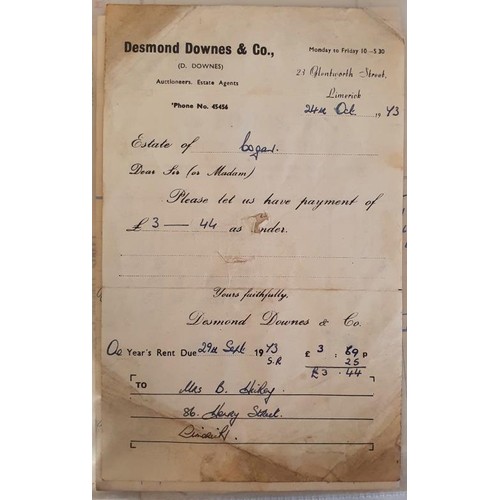 Desmond Downes & Co.,
Monday to Friday 10—5.30
(D. DOWNES)
Auctioneers. Estate Agents
'Phone No. 45456
23 Glentworth Street,
Limerick
24th Oct 1973
Estate of Cogan.
Dear Sir (or Madam)
Please let us have payment of
£ 3 — 44 as under.
Yours faithfully,
Desmond Downes & Co.
One Year's Rent Due 29th Sept 1973 £ 3 . 69 p
S.R 25
£3 . 44
TO
Mrs B.
86. Henry Street.
Limerick.